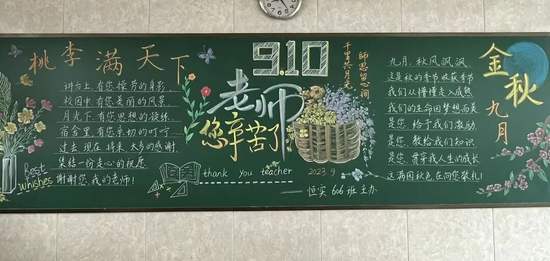 桃李满天下
讲台上 有您操劳的身影
校园中 有您美丽的风景
月光下 有您思想的
宿舍里 有您亲切的叮咛
过去 现在 将来 太多的感谢
集结一份衷心的祝愿
谢谢您 我的老师!
Best
whishes
9.10
老师
您辛苦了
thank you teacher
师恩留心间
千里总是
2023.9
恒实 606 班 主办
九月, 秋风飒飒
这是秋的季节 收获季节
我们从懵懂走入成熟
我们的生命因梦想而美
是您 给予我们激励
是您 教给我们知识
是您 贯穿我人生的成长
这满园秋色在向您敬礼!
金秋
九月